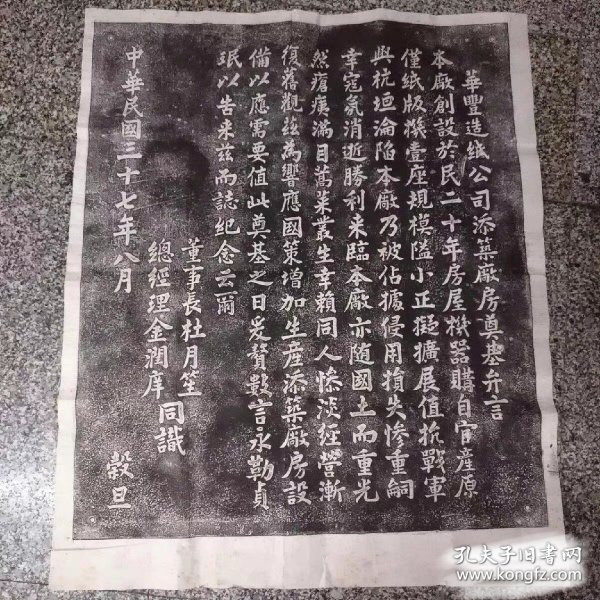 華豐造紙公司添築廠房奠基弁言
本廠創設於民二十年房屋機器購自官產原
僅紙版機壹座規模隘小正擬擴展值抗戰軍
興杭垣淪陷本廠乃被佔據侵用損失慘重嗣
幸寇氛消逝勝利來臨本廠亦隨國土而重光
然瘡痍滿目蒿萊叢生幸賴同人慘淡經營漸
復舊觀茲為響應國策增加生產添築廠房設
備以應需要值此奠基之日爰贅數言永勒貞
珉以告來茲而誌紀念云爾
董事長杜月笙
總經理金潤庠
同識
中華民國三十七年八月
穀旦
孔夫子旧书网
www.kongfz.com